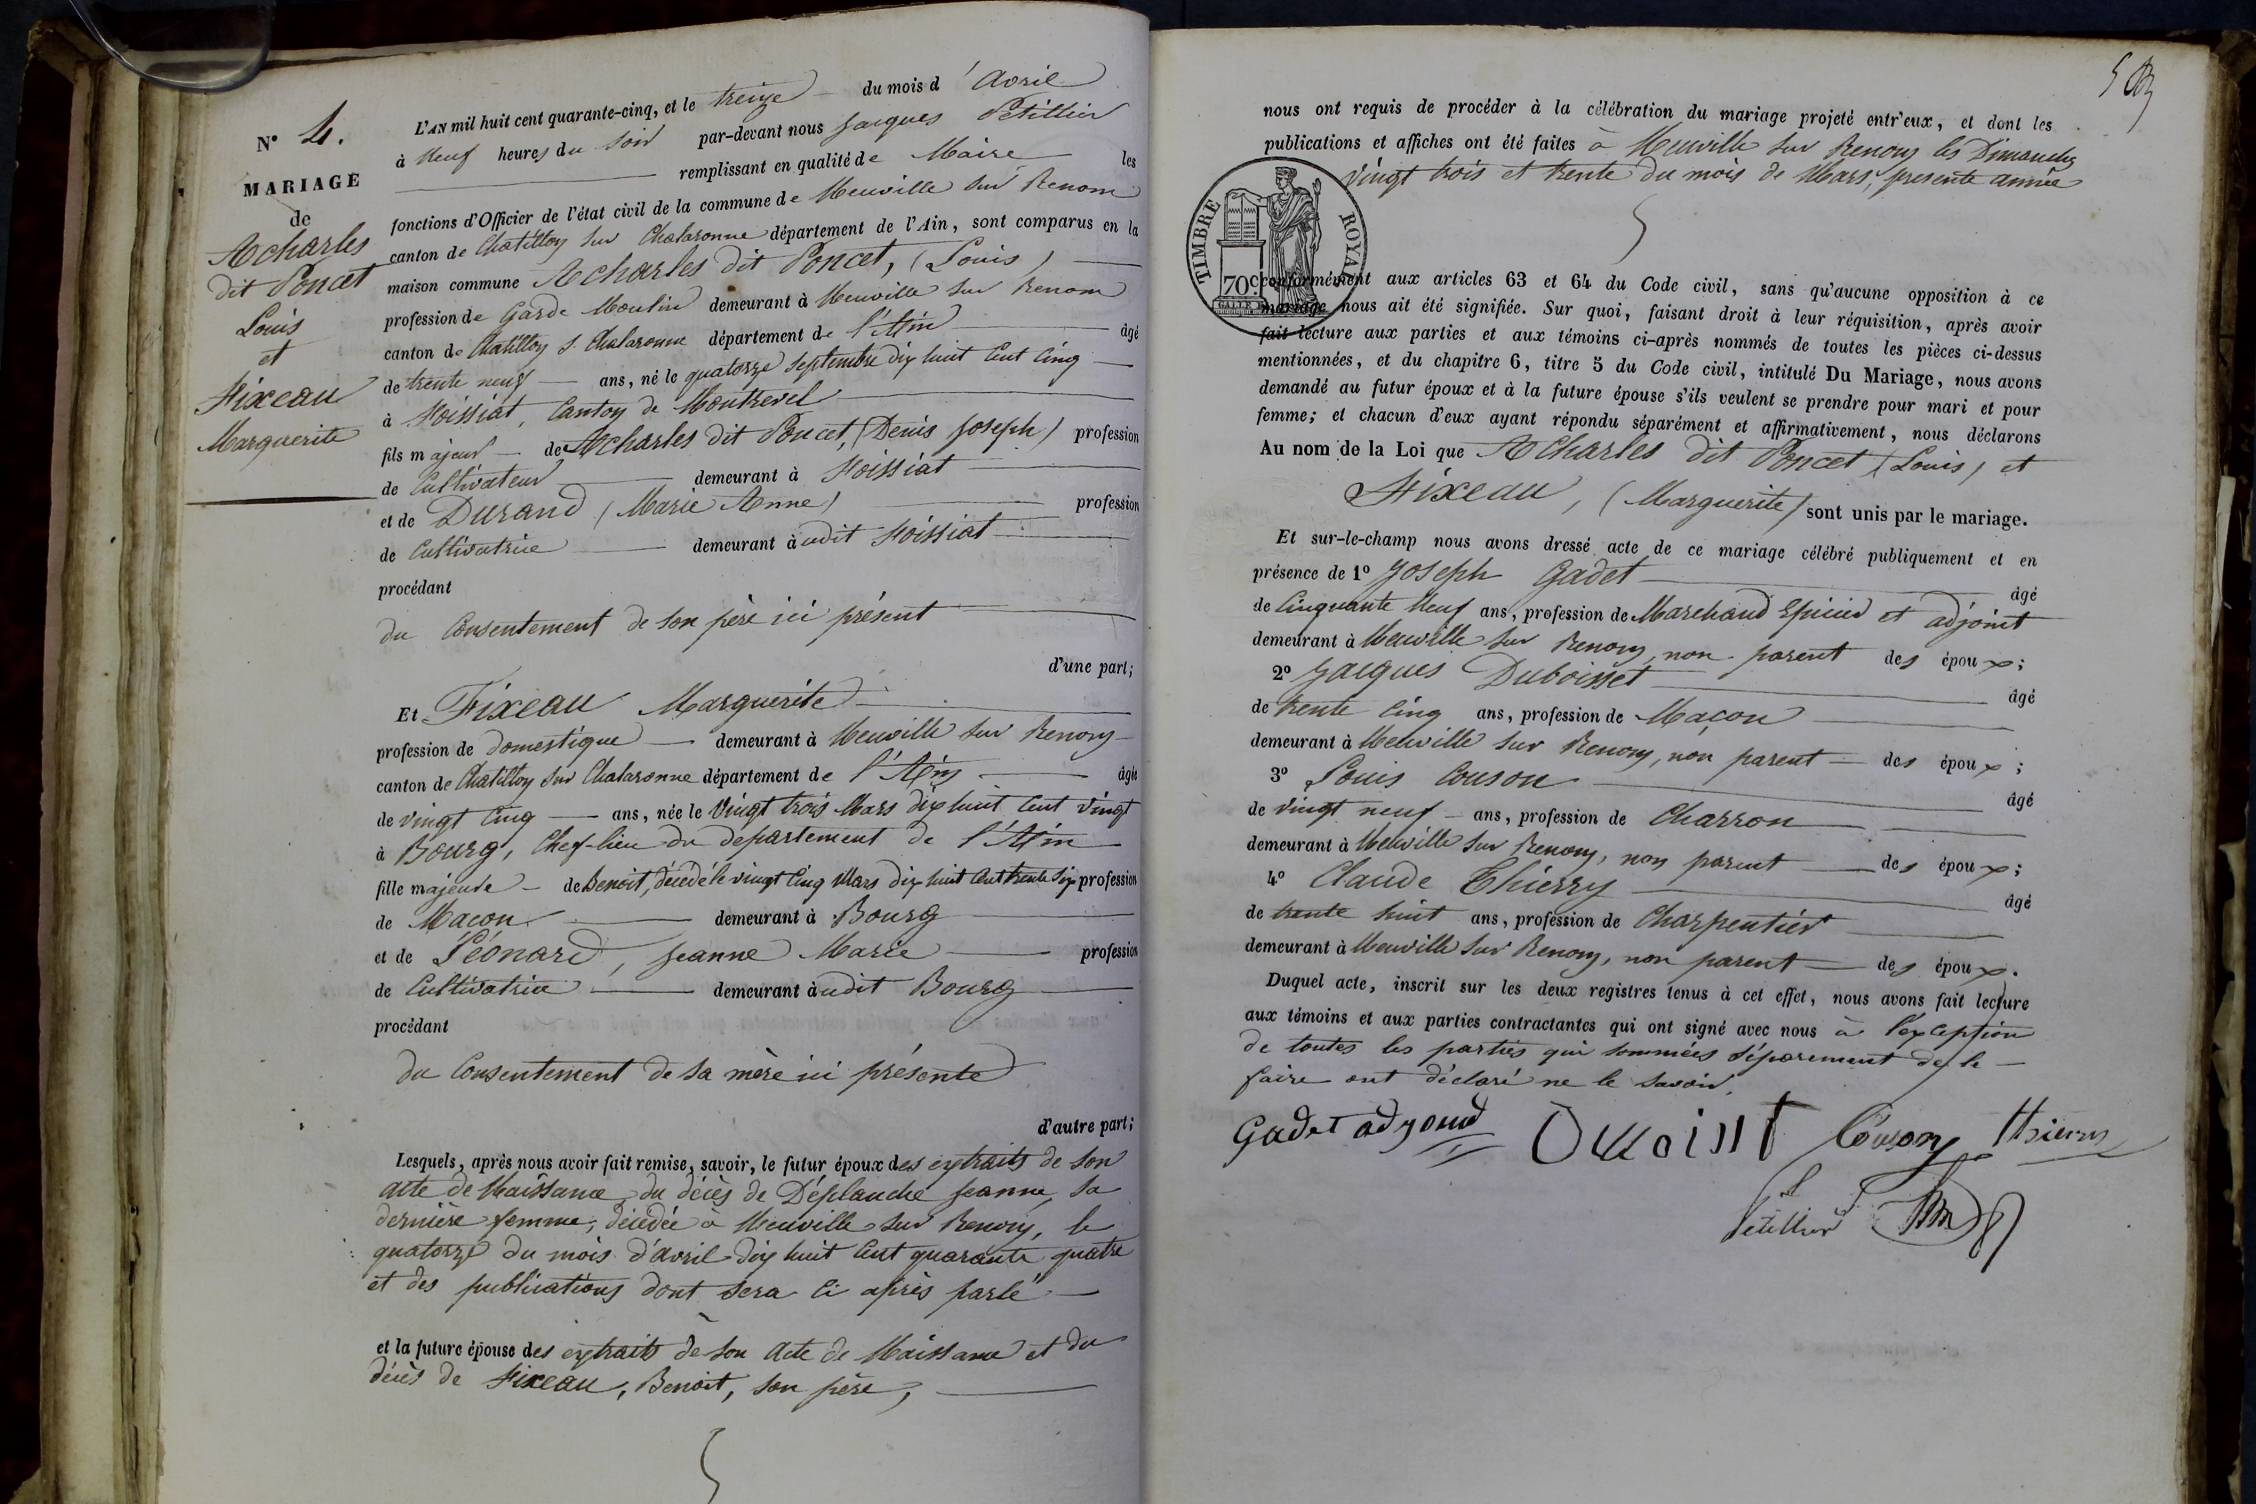 N° 4.
MARIAGE
de
Acharles
dit Poncet
Louis
et
Fixeau
Marguerite
L'AN mil huit cent quarante-cinq, et le treize du mois d'Avril
à Neuf heures du soir par-devant nous Jacques Petillier
remplissant en qualité de Maire les
fonctions d'Officier de l'état civil de la commune de Neuville sur Renom
canton de Chatillon sur Chalaronne département de l'Ain, sont comparus en la
maison commune Acharles dit Poncet, (Louis)
profession de Garde Moulin demeurant à Neuville sur Renom
canton de Chatillon s. Chalaronne département de l'Ain âgé
de trente neuf ans, né le quatorze septembre dix huit Cent Cinq
à Foissiat, Canton de Montrevel
fils majeur de Acharles dit Poncet, (Denis Joseph) profession
de Cultivateur demeurant à Foissiat
et de Durand (Marie Anne) profession
de Cultivatrice demeurant à udit Foissiat
procédant
du Consentement de son père ici présent
d'une part;
Et Fixeau Marguerite
profession de domestique demeurant à Neuville sur Renom
canton de Chatillon sur Chalaronne département de l'Ain âgée
de vingt Cinq ans, née le Vingt trois Mars dix huit Cent Vingt
à Bourg, Chef-lieu du departement de l'Ain
fille majeure de Benoit, décedé le vingt Cinq Mars dix huit Cent trente six profession
de Macon demeurant à Bourg
et de Léonard, Jeanne Marie profession
de Cultivatrice demeurant à udit Bourg
procédant
du Consentement de sa mère ici présente
d'autre part;
Lesquels, après nous avoir fait remise, savoir, le futur époux des extraits de son
acte de Naissance, du décès de Déplanche Jeanne, sa
dernière femme, décedée à Neuville sur Renom, le
quatorze du mois d'avril dix huit Cent quarante quatre
et des publications dont sera Ci après parlé
et la future épouse des extraits de son Acte de Naissance et du
décès de Fixeau, Benoit, son père,
nous ont requis de procéder à la célébration du mariage projeté entr'eux, et dont les
publications et affiches ont été faites à Neuville sur Renom les Dimanches
Vingt trois et trente du mois de Mars, presente année
TIMBRE ROYAL
70 c
conformément aux articles 63 et 64 du Code civil, sans qu'aucune opposition à ce
mariage nous ait été signifiée. Sur quoi, faisant droit à leur réquisition, après avoir
fait lecture aux parties et aux témoins ci-après nommés de toutes les pièces ci-dessus
mentionnées, et du chapitre 6, titre 5 du Code civil, intitulé Du Mariage, nous avons
demandé au futur époux et à la future épouse s'ils veulent se prendre pour mari et pour
femme; et chacun d'eux ayant répondu séparément et affirmativement, nous déclarons
Au nom de la Loi que Acharles dit Poncet (Louis) et
Fixeau, (Marguerite) sont unis par le mariage.
Et sur-le-champ nous avons dressé acte de ce mariage célébré publiquement et en
présence de 1° Joseph Gadet âgé
de Cinquante Neuf ans, profession de Marchand Epicier et adjoint
demeurant à Neuville sur Renom, non parent des époux;
2° Jacques Duboisset âgé
de trente Cinq ans, profession de Maçon
demeurant à Neuville sur Renom, non parent des époux;
3° Louis Couson âgé
de vingt neuf ans, profession de Charron
demeurant à Neuville sur Renom, non parent des époux;
4° Claude Thierry âgé
de trente huit ans, profession de Charpentier
demeurant à Neuville sur Renom, non parent des époux.
Duquel acte, inscrit sur les deux registres tenus à cet effet, nous avons fait lecture
aux témoins et aux parties contractantes qui ont signé avec nous à l'exception
de toutes les parties qui sommées séparement de le
faire ont déclaré ne le savoir.
Gadet adjoint Couson Thierry
Petillier